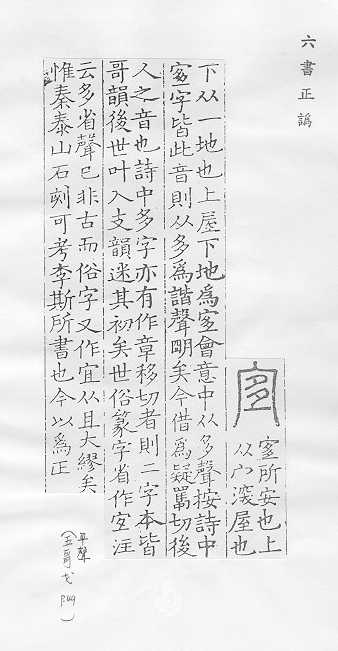 六書正譌
㝖所安也上
从宀深屋也
下从一地也上屋下地為㝖會意中从多聲按詩中
㝖字皆此音則从多為諧聲眀矣今借為疑羈切後
人之音也詩中多字亦有作章移切者則二字本皆
哥韻後世叶入支韻迷其初矣世俗篆字省作宐注
云多省聲已非古而俗字又作宜从且大繆矣
惟秦泰山石刻可考李斯所書也今以為正
平聲
(五哥戈 P.44)